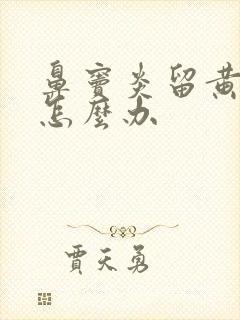 鼻窦炎留黄
怎麼办
贾天勇